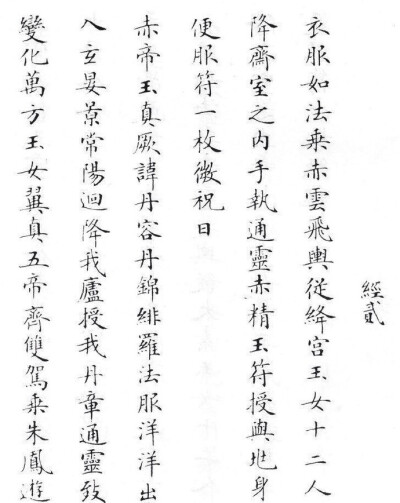 經貳
衣服如法乗赤雲飛輿從絳宮玉女十二人
降齋室之内手執通靈赤精玉符授與兆身
便服符一枚微祝曰
赤帝玉真厥諱丹容丹錦緋羅法服洋洋出
入玄晏景常陽迴降我廬授我丹章通靈致
變化萬方玉女翼真五帝齊雙駕乗朱鳳遊